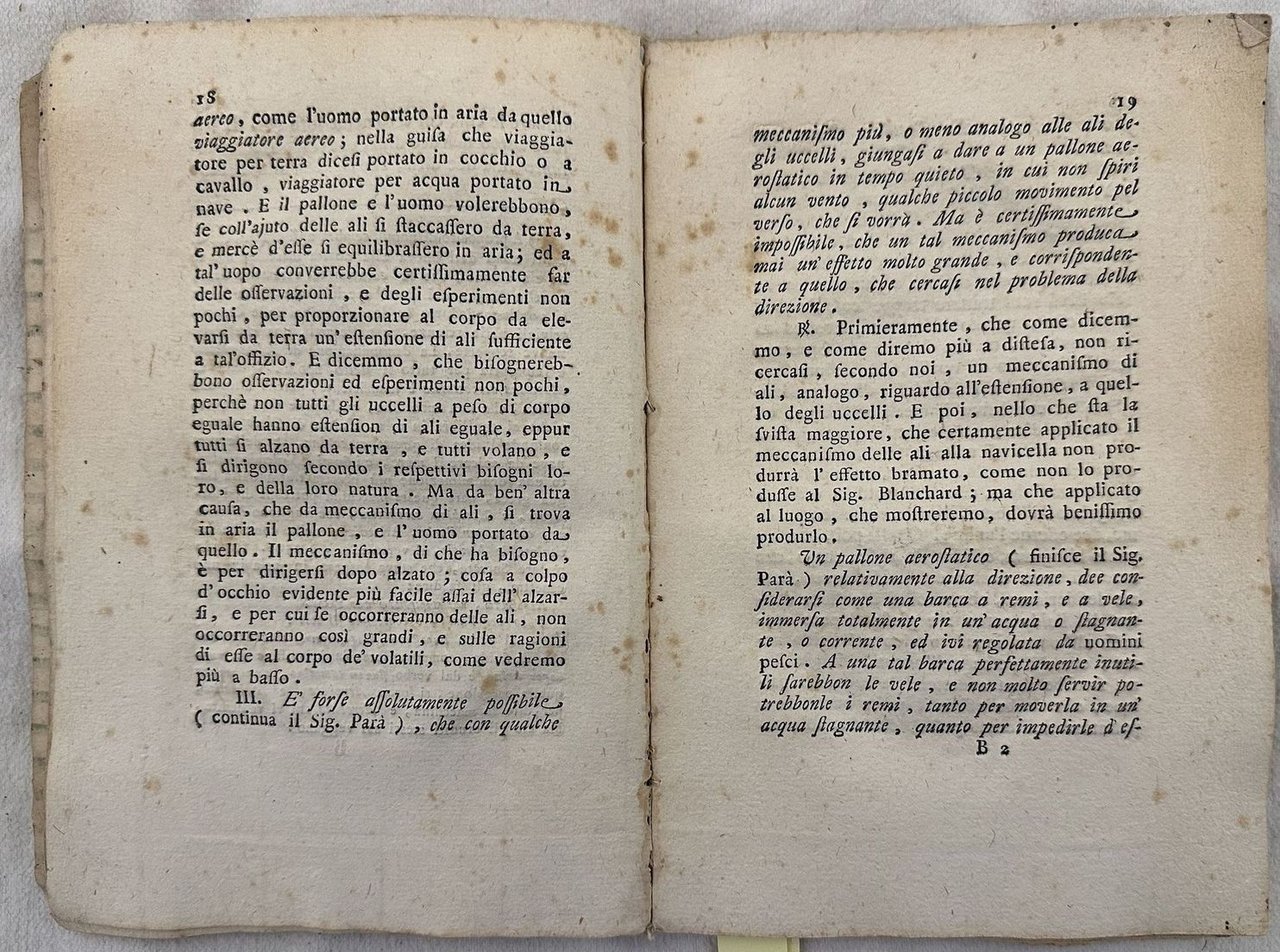 18
aereo, come l'uomo portato in aria da quello
viaggiatore aereo; nella guiſa che viaggia-
tore per terra diceſi portato in cocchio o a
cavallo, viaggiatore per acqua portato in
nave. E il pallone e l'uomo volerebbono,
ſe coll'ajuto delle ali ſi ſtaccaſſero da terra,
e mercè d'eſſe ſi equilibraſſero in aria; ed a
tal' uopo converrebbe certiſſimamente far
delle oſſervazioni, e degli eſperimenti non
pochi, per proporzionare al corpo da ele-
varſi da terra un' eſtenſione di ali ſufficiente
a tal'offizio. E dicemmo, che biſognereb-
bono oſſervazioni ed eſperimenti non pochi,
perchè non tutti gli uccelli a peſo di corpo
eguale hanno eſtenſion di ali eguale, eppur
tutti ſi alzano da terra, e tutti volano, e
ſi dirigono ſecondo i reſpettivi biſogni lo-
ro, e della loro natura. Ma da ben' altra
cauſa, che da meccaniſmo di ali, ſi trova
in aria il pallone, e l'uomo portato da
quello. Il meccaniſmo, di che ha biſogno,
è per dirigerſi dopo alzato; coſa a colpo
d'occhio evidente più facile aſſai dell' alzar-
ſi, e per cui ſe occorreranno delle ali, non
occorreranno così grandi, e sulle ragioni
di eſſe al corpo de' volatili, come vedremo
più a baſſo.
III. E' forſe aſſolutamente poſſibile
( continua il Sig. Parà ), che con qualche
19
meccaniſmo più, o meno analogo alle ali de-
gli uccelli, giungaſi a dare a un pallone ae-
roſtatico in tempo quieto, in cui non ſpiri
alcun vento, qualche piccolo movimento pel
verſo, che ſi vorrà. Ma è certiſſimamente
impoſſibile, che un tal meccaniſmo produca
mai un' effetto molto grande, e corriſponden-
te a quello, che cercaſi nel problema della
direzione.
℟. Primieramente, che come dicem-
mo, e come diremo più a diſteſa, non ri-
cercaſi, ſecondo noi, un meccaniſmo di
ali, analogo, riguardo all'eſtenſione, a quel-
lo degli uccelli. E poi, nello che ſta la
ſviſta maggiore, che certamente applicato il
meccaniſmo delle ali alla navicella non pro-
durrà l' effetto bramato, come non lo pro-
duſſe al Sig. Blanchard; ma che applicato
al luogo, che moſtreremo, dovrà beniſſimo
produrlo.
Un pallone aeroſtatico ( finiſce il Sig.
Parà ) relativamente alla direzione, dee con-
ſiderarſi come una barca a remi, e a vele,
immerſa totalmente in un' acqua o ſtagnan-
te, o corrente, ed ivi regolata da uomini
peſci. A una tal barca perfettamente inuti-
li ſarebbon le vele, e non molto ſervir po-
trebbonle i remi, tanto per moverla in un'
acqua ſtagnante, quanto per impedirle d'eſ-
B 2